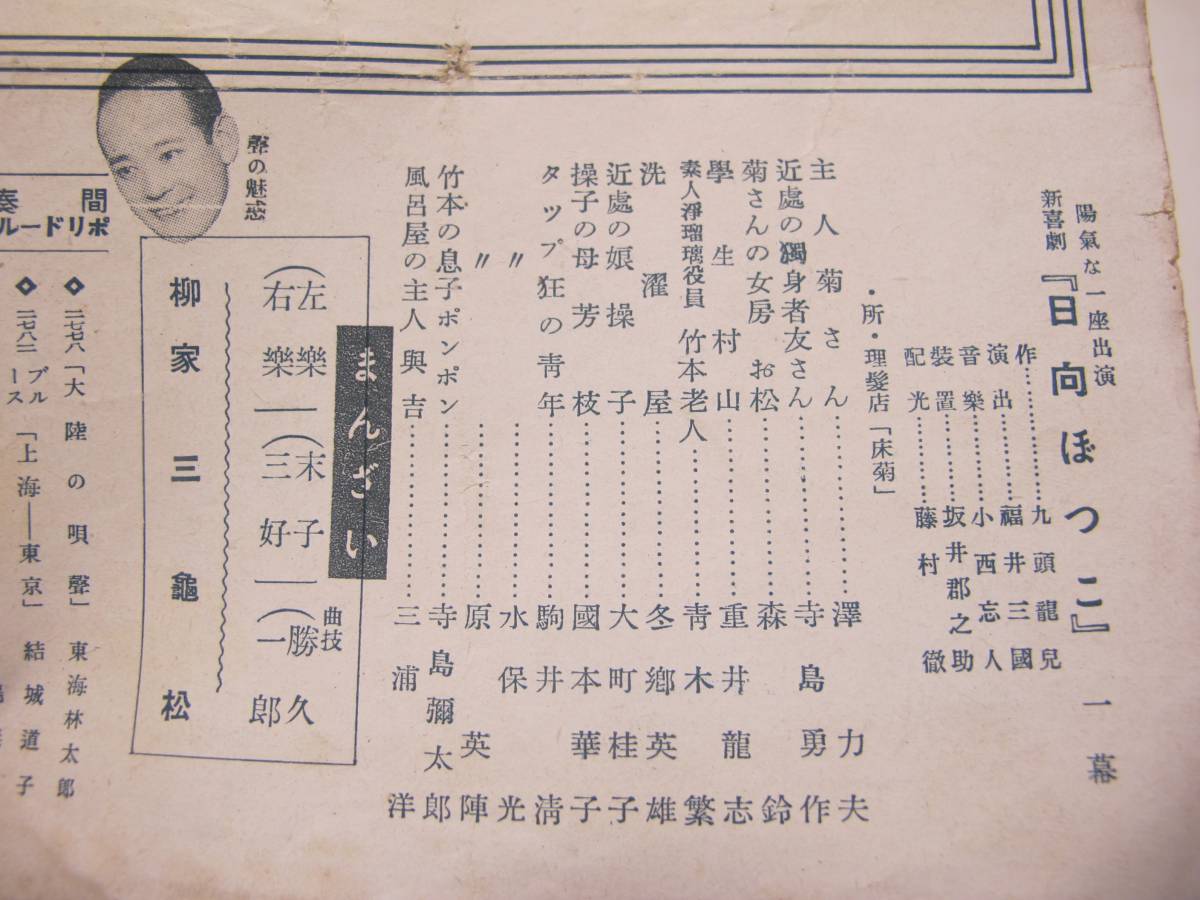 陽氣な一座出演
新喜劇『日向ぼつこ』一幕
作……九頭龍兒
演出……福井三國
音樂……小西忘人
裝置……坂井郡之助
配光……藤村徹
・所・理髮店「床菊」
主人菊さん……澤力夫
近處の獨身者友さん……寺島勇作
菊さんの女房お松……森鈴
學生村山……重井龍志
素人淨瑠璃役員竹本老人……青木繁
洗濯屋……冬鄕英雄
近處の娘操子……大町桂子
操子の母芳枝……國本華子
タップ狂の靑年……駒井淸
〃……水保光
〃……原英陣
竹本の息子ポンポン……寺島彌太郎
風呂屋の主人與吉……三浦洋
まんざい
(左樂 右樂)―(末子 三好)―曲技(勝久 一郎)
柳家三龜松
聲の魅惑
間奏
ポリドール
◆二七八「大陸の唄聲」東海林太郎
◆二七八二ブルース「上海――東京」結城道子